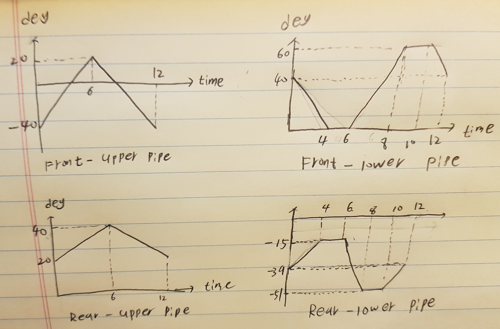 deg
20
12
time
6
-40
Front - upper pipe
deg
60
40
4
6
8
10
12
time
Front - lower pipe
deg
40
20
6
12
time
Rear - upper pipe
4
6
8
10
12
-15
-39
-51
Rear - lower pipe